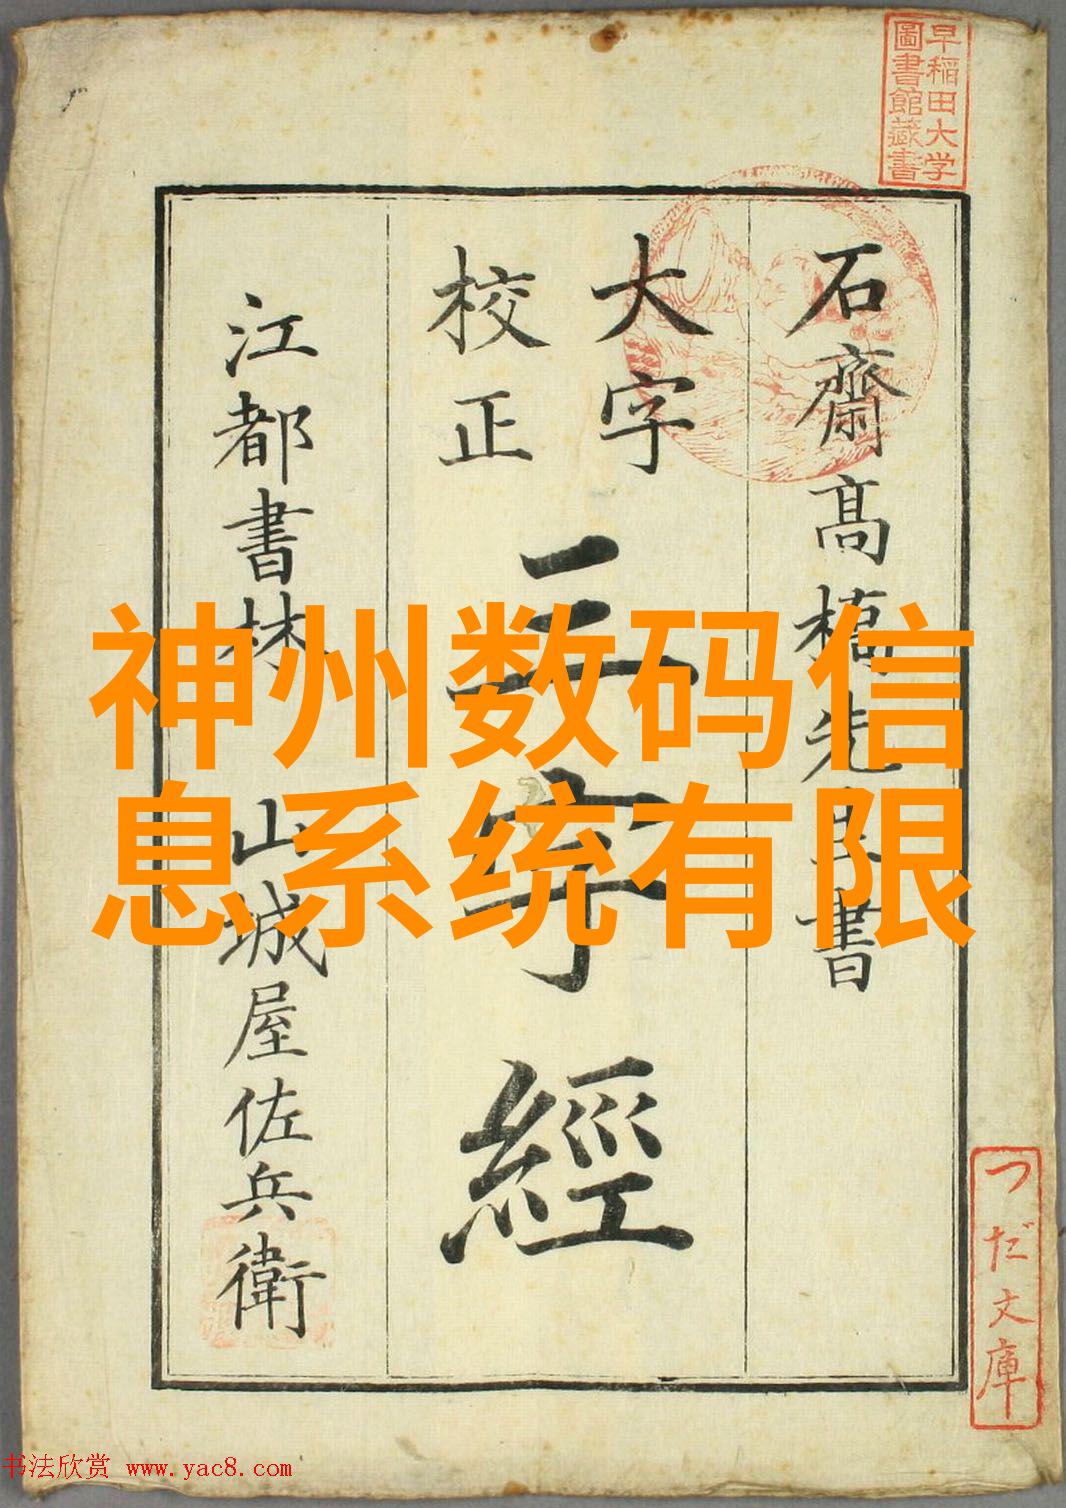 早稲田大学
圖書館藏書
石齋髙槗先生書
大字
校正
三字經
江都書林 山城屋佐兵衛
神州数码信
息系统有限
つだ文庫
书法欣赏 www.yac8.com